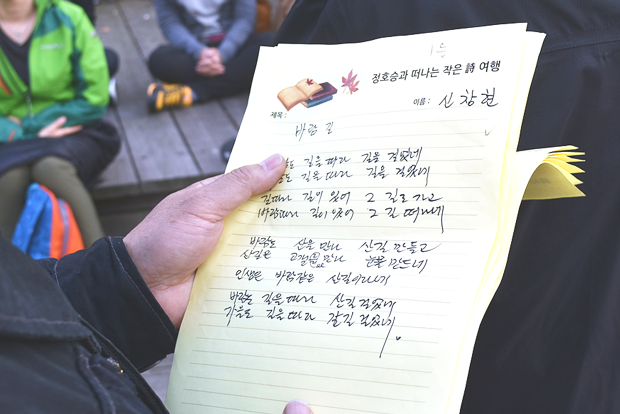 1등
정호승과 떠나는 작은 詩 여행
제목:
이름: 신창현
바람 길
길을 따라 길을 걸었네
길을 따라 길을 걸었네
길따라 길이 있어 그 길로 가고
바람따라 길이 있어 그 길
바람은 산을 만나 산길 만들고
산길은 만나 만드네
인생은 바람같은 산길이라네
바람은 길을 따라 산길 걸었네
가을도 길을 따라 갈길 걸었네